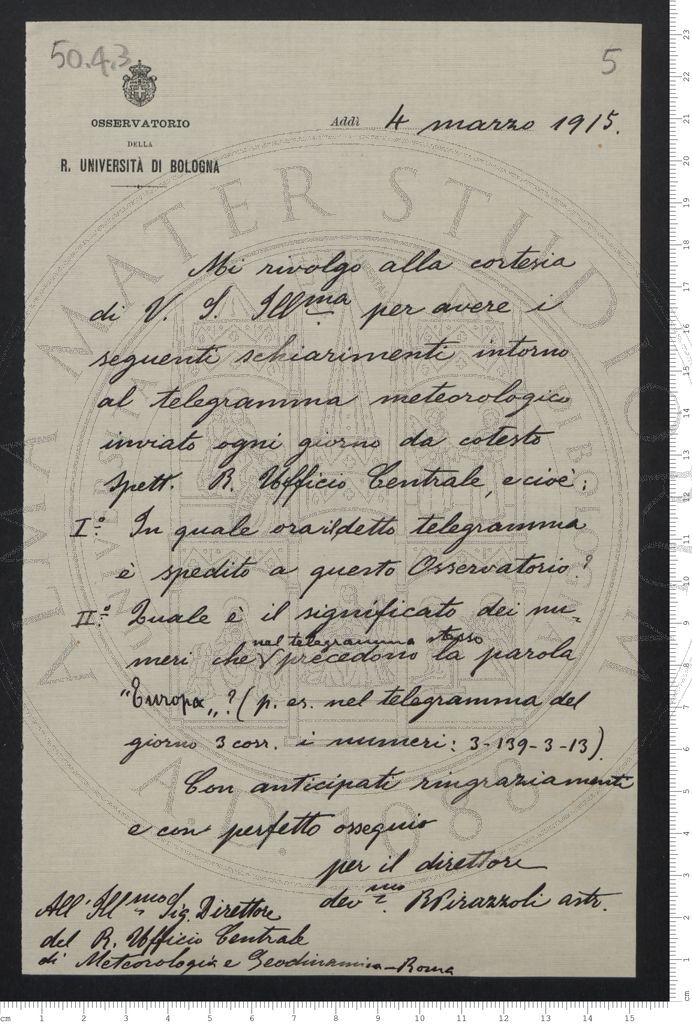 50.4.3
5
OSSERVATORIO
DELLA
R. UNIVERSITÀ DI BOLOGNA
Addì 4 marzo 1915.
Mi rivolgo alla cortesia
di V. S. Ill.ma per avere i
seguenti schiarimenti intorno
al telegramma meteorologico
inviato ogni giorno da cotesto
Spett. R. Ufficio Centrale, e cioè:
I.º In quale ora il detto telegramma
è spedito a questo Osservatorio?
II.º Quale è il significato dei nu-
nel telegramma stesso
meri che precedono la parola
"Europa„? (p. es. nel telegramma del
giorno 3 corr. i numeri: 3-139-3-13).
Con anticipati ringraziamenti
e con perfetto ossequio
per il direttore
dev.mo R Pirazzoli astr.
All'Ill.mo Sig. Direttore
del R. Ufficio Centrale
di Meteorologia e Geodinamica - Roma
ALMA MATER STUDIORUM
A.D. 1088